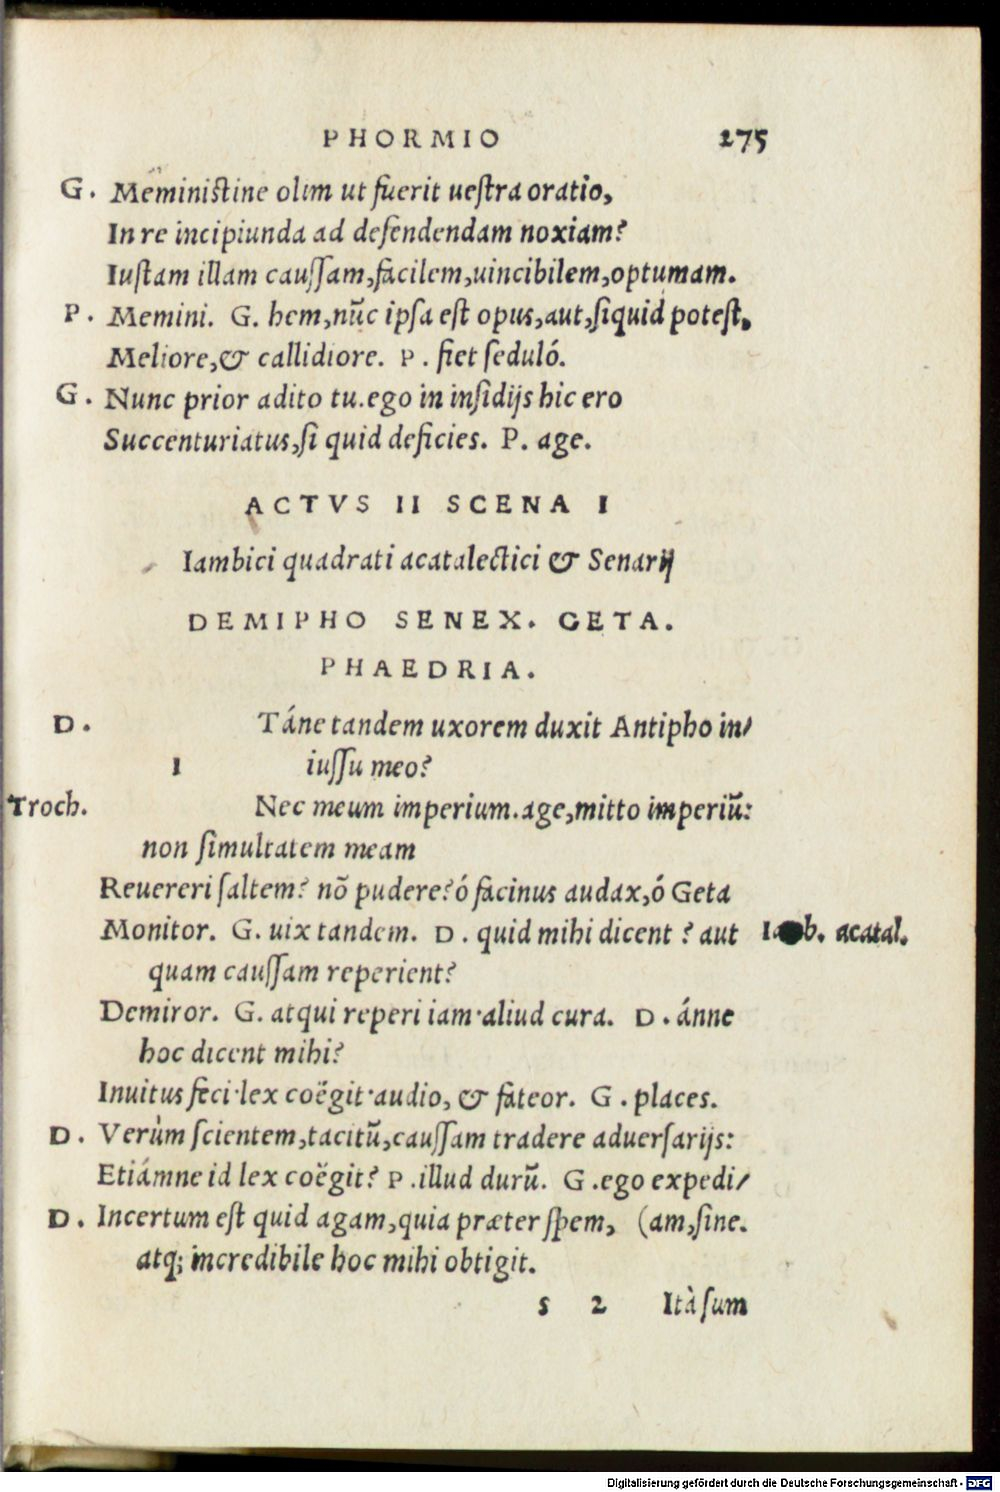 PHORMIO 275
G. Meministine olim ut fuerit uestra oratio,
In re incipiunda ad defendendam noxiam?
Iustam illam caussam,facilem,uincibilem,optumam.
P. Memini. G. hem,nūc ipsa est opus,aut,siquid potest,
Meliore,& callidiore. P. fiet seduló.
G. Nunc prior adito tu.ego in insidijs hic ero
Succenturiatus,si quid deficies. P. age.
ACTVS II SCENA I
Iambici quadrati acatalectici & Senarij
DEMIPHO SENEX. GETA.
PHAEDRIA.
D. Táne tandem uxorem duxit Antipho in/
1 iussu meo?
Troch. Nec meum imperium.age,mitto imperiū:
non simultatem meam
Reuereri saltem? nō pudere?ó facinus audax,ó Geta
Monitor. G. uix tandem. D. quid mihi dicent ? aut Iamb. acatal.
quam caussam reperient?
Demiror. G. atqui reperi iam·aliud cura. D. ánne
hoc dicent mihi?
Inuitus feci·lex coëgit·audio, & fateor. G. places.
D. Verùm scientem,tacitū,caussam tradere aduersarijs:
Etiámne id lex coëgit? P. illud durū. G. ego expedi/
D. Incertum est quid agam,quia præter spem, (am,sine.
atq; incredibile hoc mihi obtigit.
s 2 Ità sum
Digitalisierung gefördert durch die Deutsche Forschungsgemeinschaft - DFG